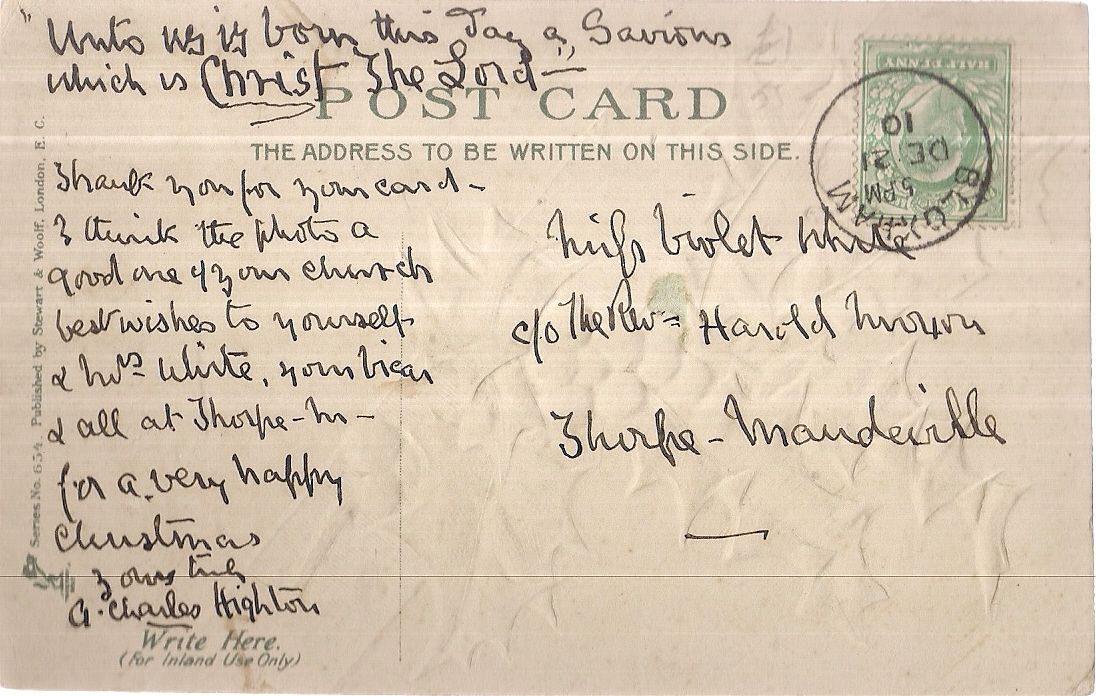 "Unto us is born this Day a Saviour
which is Christ The Lord" —
POST CARD
THE ADDRESS TO BE WRITTEN ON THIS SIDE.
HALF PENNY
BLOXHAM
5 PM
DE 21
10
Series No. 654 Published by Stewart & Woolf, London, E. C.
Thank you for your card —
I think the photo a
good one of your church
best wishes to yourself
& Mrs White, your Vicar
& all at Thorpe-M —
for a very happy
Christmas
Yours truly
G. Charles Highton
Write Here.
(For Inland Use Only)
Miss Violet White
c/o The Rev = Harold Moxon
Thorpe - Mandeville